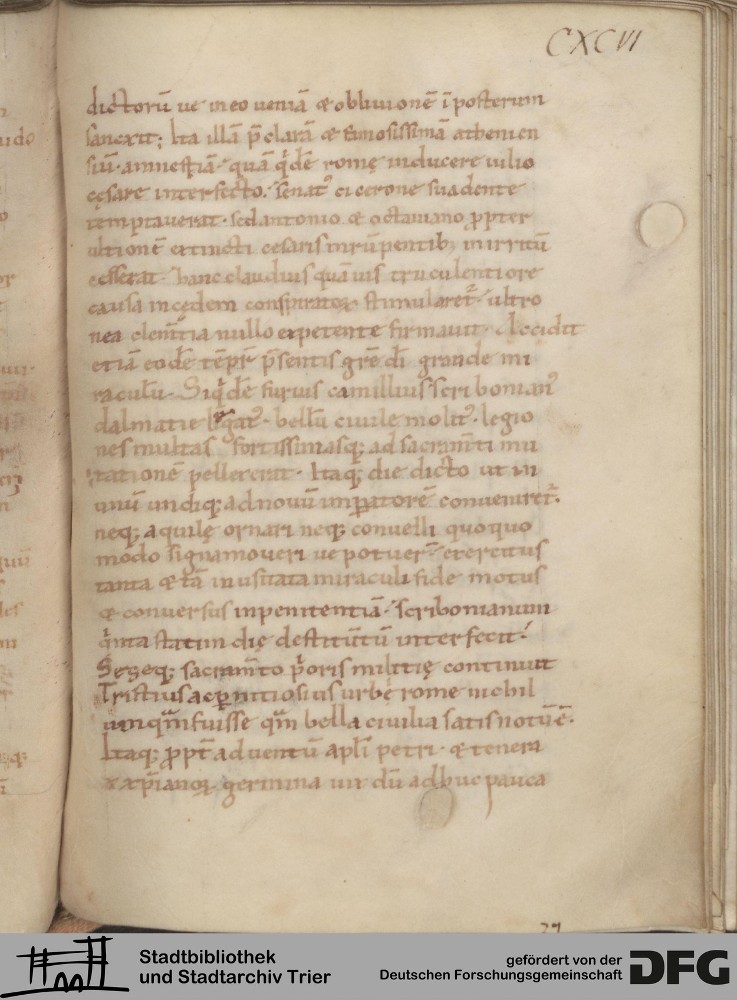 CXCVI
dictorũ ue in eo ueniã & obliuionẽ ĩ posterum
sancxit; Ita illã p̃clarã & famosissimã athenien
siũ. amnestiã. quã q̇dẽ romę inducere iulio
cęsare interfecto. senatꝰ cicerone suadente
temptauerat. sed antonio & octauiano ꝓpter
ultionẽ extincti cesaris inrũpentib; in irritũ
cesserat. hanc claudius quã uis truculentiore
causa in cędem conspiratoꝝ stimularet̃. ultro
nea clem̃tia nullo expetente firmauit. Accidit
etiã eodẽ tẽpr̃ p̃sentis grẽ dĩ grande mi
raculũ. Siq̇dẽ furius camillus scribonianꝰ
dalmatie legatꝰ. bellũ ciuile molitꝰ. legio
nes multas fortissimasq; ad sacram̃ti mu
tationẽ pellexerit. Itaq; die dicto ut in
unũ undiq; ad nouũ imꝑatorẽ conueniret̃.
neq; aquilę ornari neq; conuelli quoquo
modo signa moueri ue potuer̃. exercitus
tanta & tã inusitata miraculi fide motus
& conuersus in penitentiã. scribonianum
q̇nta statim die destitutũ interfecit.
Seseq; sacram̃to p̃oris militię continuit
Tristius ac ꝑnitiosius urbẹ rome nichil
umquã fuisse quã bella ciuilia satis notũ ẽ.
Itaq; ꝓpt̃ aduentũ apl̃i petri. & tenera
xp̃ianoꝝ germina uix dũ adhuc pauca
27
Stadtbibliothek
und Stadtarchiv Trier
gefördert von der
Deutschen Forschungsgemeinschaft
DFG